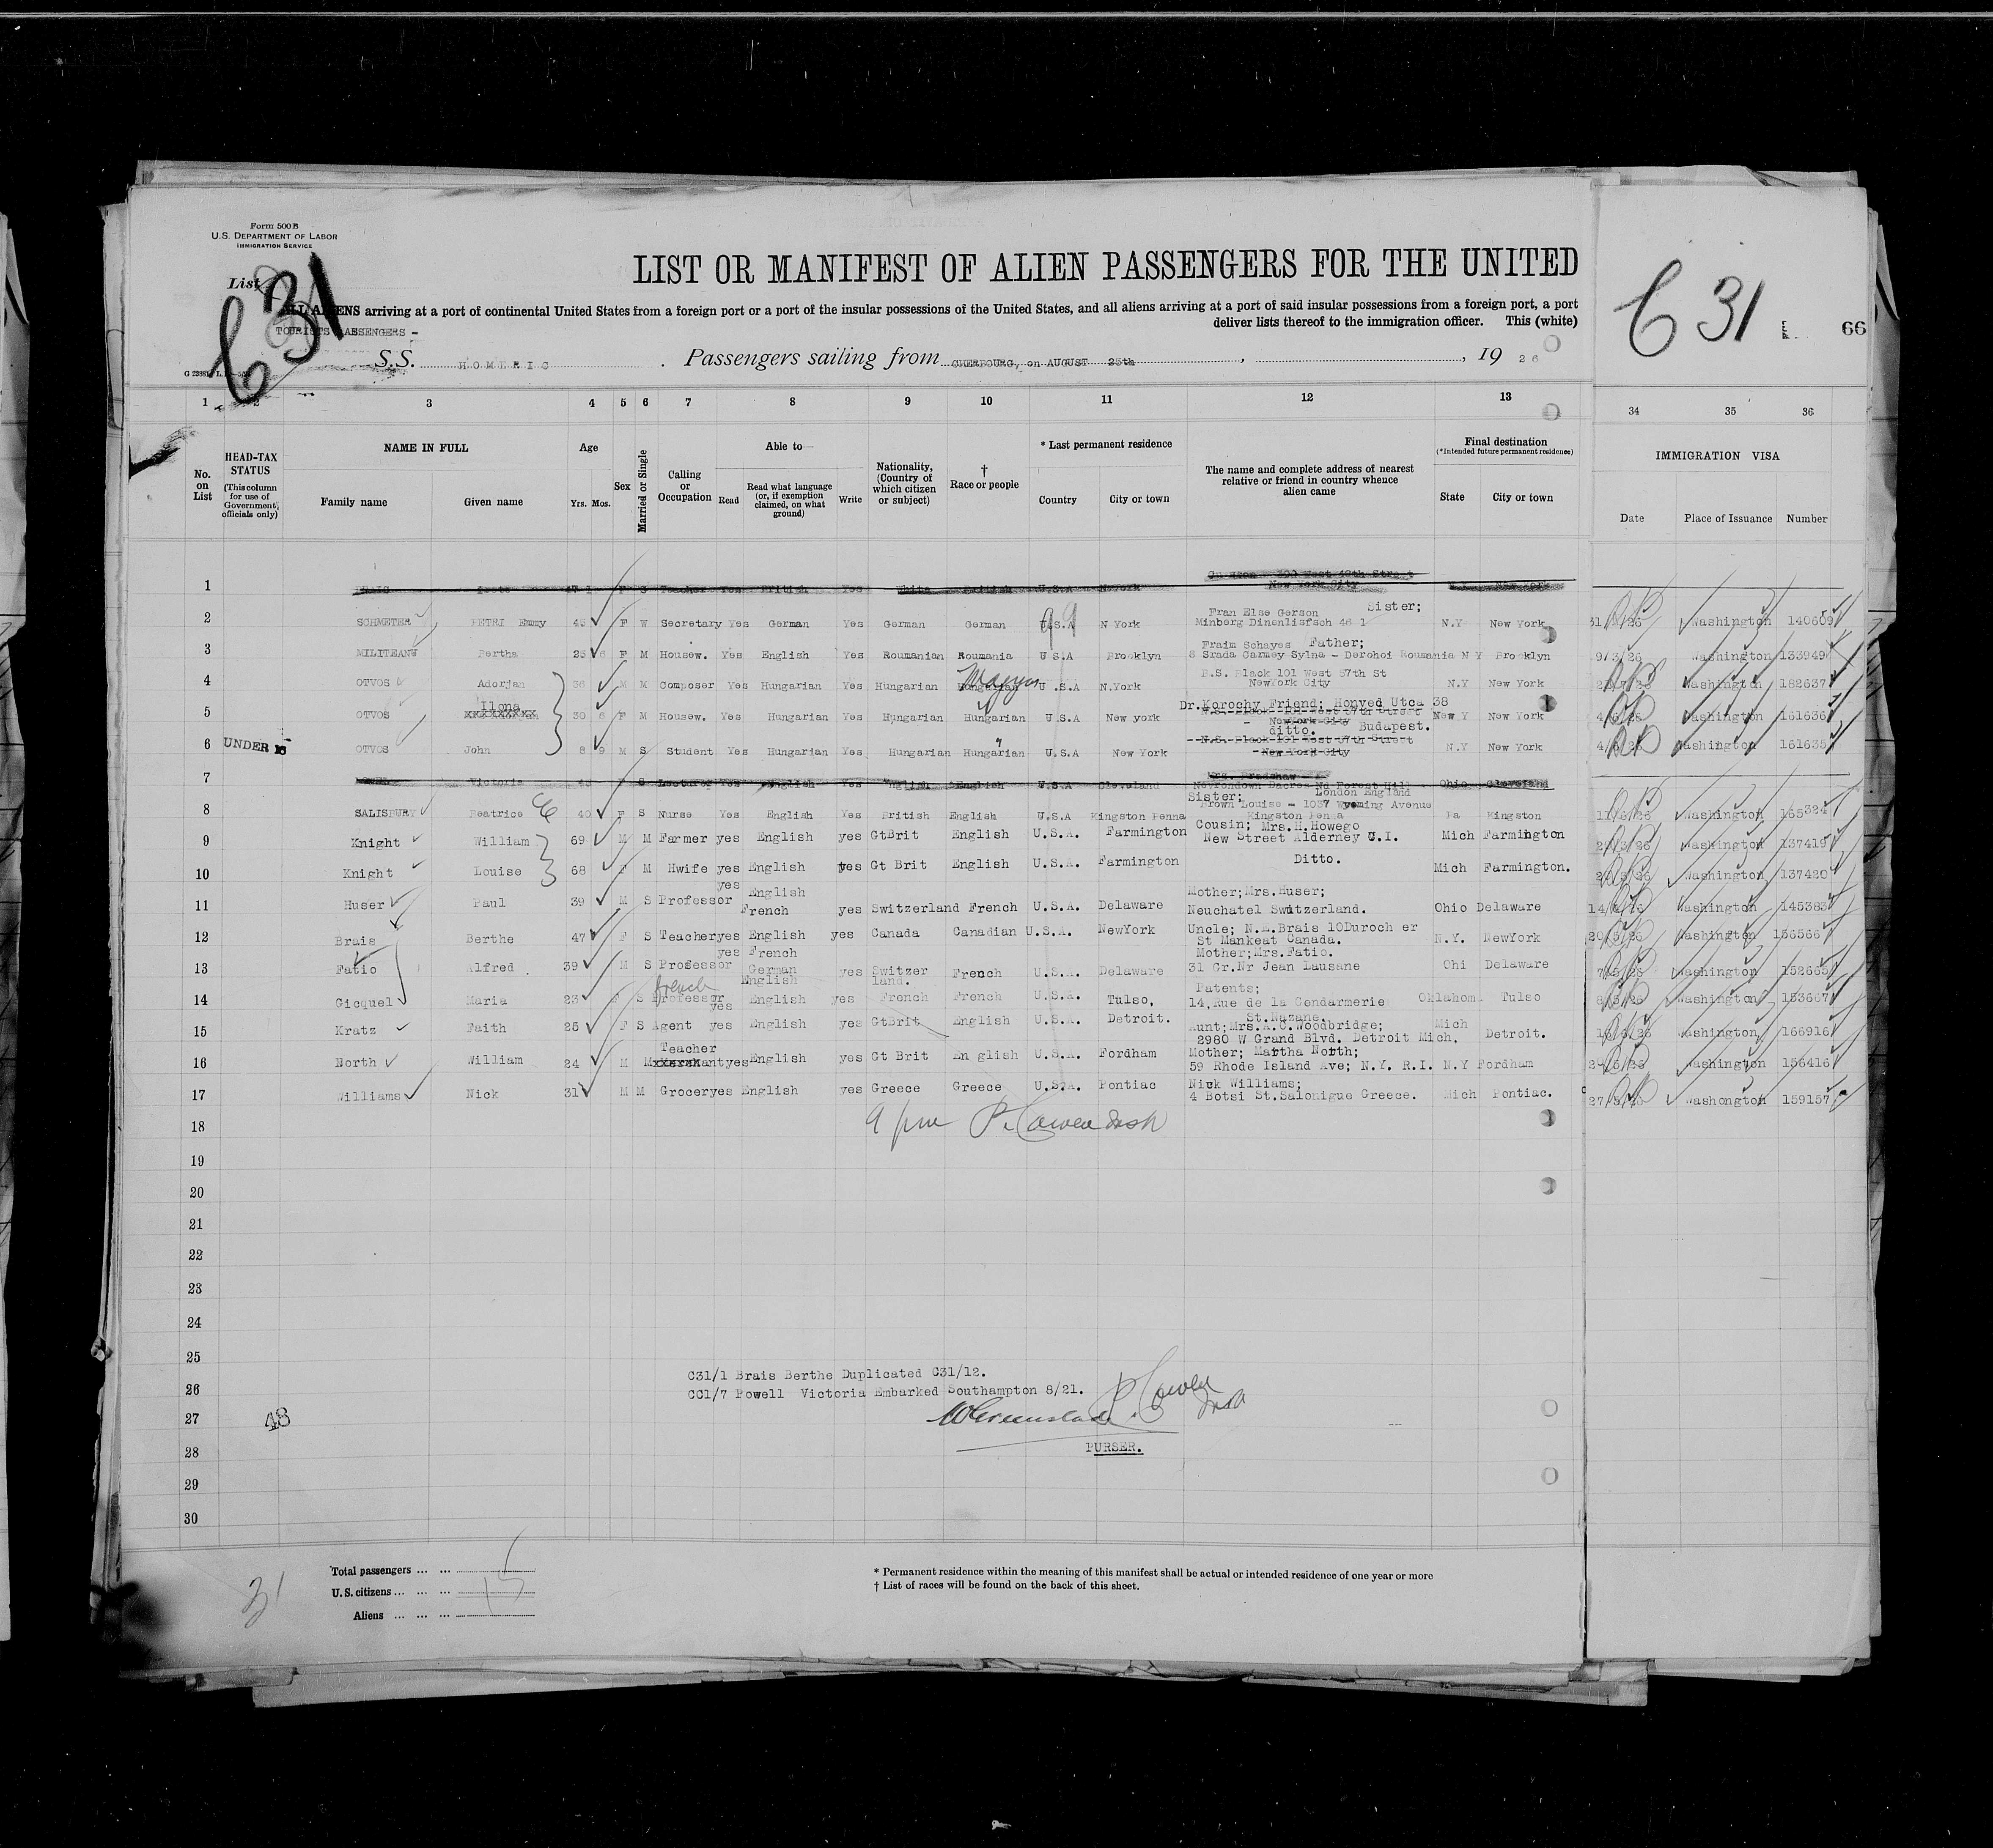 Form 500B
U.S. DEPARTMENT OF LABOR
IMMIGRATION SERVICE
List
C31
LIST OR MANIFEST OF ALIEN PASSENGERS FOR THE UNITED
C 31
66
ALL ALIENS arriving at a port of continental United States from a foreign port or a port of the insular possessions of the United States, and all aliens arriving at a port of said insular possessions from a foreign port, a port
deliver lists thereof to the immigration officer. This (white)
TOURISTS PASSENGERS -
S.S. HOMERIC. Passengers sailing from CHERBOURG, on AUGUST 25th, 19 26
1 2 3 4 5 6 7 8 9 10 11 12 13 34 35 36
No. on List
HEAD-TAX STATUS (This column for use of Government officials only)
NAME IN FULL
Family name Given name
Age Yrs. Mos.
Sex
Married or Single
Calling or Occupation
Able to—
Read Read what language (or, if exemption claimed, on what ground) Write
Nationality, (Country of which citizen or subject)
† Race or people
* Last permanent residence
Country City or town
The name and complete address of nearest relative or friend in country whence alien came
Final destination
(*Intended future permanent residence)
State City or town
IMMIGRATION VISA
Date Place of Issuance Number
1 Yes British Yes White British U.S.A NewYork 200 West 48th Street New York City
2 SCHMETER PETRI Emmy 45 F W Secretary Yes German Yes German German U.S.A N York Fran Else Gerson Sister; N.Y New York Washington 140609
3 MILITEANU Bertha 25 6 F M Housew. Yes English Yes Roumanian Roumania U S A Brooklyn Fraim Schayes Father; 8 Srada Carmey Sylna - Dorohoi Roumania N Y Brooklyn 9/3/26 Washington 133949
4 OTVOS Adorjan 36 M M Composer Yes Hungarian Yes Hungarian Hungarian Magyar U.S.A N.York E.S. Black 101 West 57th St NewYork City N.Y New York Washington 182637
5 OTVOS Ilona 30 6 F M Housew. Yes Hungarian Yes Hungarian Hungarian U.S.A New york Dr.Korochy Friend; Honved Utca 38 Budapest. New Y New York Washington 161636
6 UNDER 16 OTVOS John 8 9 M S Student Yes Hungarian Yes Hungarian Hungarian U.S.A New York ditto. N.S. Black 101 West 57th Street New York City N.Y New York Washington 161635
7 Victoria S Lecturer Yes English Yes English English U.S.A Cleveland Mrs. Bradshaw Forest Hill London England Ohio Cleveland
8 SALISBURY Beatrice 40 F S Nurse Yes English Yes British English U.S.A Kingston Penna Sister; Brown Louise - 1037 Wyoming Avenue Kingston Penna Pa Kingston Washington 165324
9 Knight William 69 M M Farmer yes English yes GtBrit English U.S.A. Farmington Cousin; Mrs.H.Howego New Street Alderney C.I. Mich Farmington Washington 137419
10 Knight Louise 68 F M Hwife yes English yes Gt Brit English U.S.A. Farmington Ditto. Mich Farmington. Washington 137420
11 Huser Paul 39 M S Professor yes English French yes Switzerland French U.S.A. Delaware Mother;Mrs.Huser; Neuchatel Switzerland. Ohio Delaware Washington 145383
12 Brais Berthe 47 F S Teacher yes English yes Canada Canadian U.S.A. NewYork Uncle; N.E.Brais 10Duroch er St Mankeat Canada. N.Y. NewYork 20/5/26 Washington 156566
13 Fatio Alfred 39 M S Professor yes French German English yes Switzer land. French U.S.A. Delaware Mother;Mrs.Fatio. 31 Gr.Nr Jean Lausane Ohi Delaware Washington 152665
14 Gicquel Maria 23 F S french Professor yes English yes French French U.S.A. Tulso, Patents; 14,Rue de la Gendarmerie St.Nazane. Oklahom Tulso Washington 153667
15 Kratz Faith 25 F S Agent yes English yes GtBrit English U.S.A. Detroit. Aunt;Mrs.A.C.Woodbridge; 2980 W Grand Blvd. Detroit Mich. Mich Detroit. Washington 166916
16 North William 24 M M Teacher yes English yes Gt Brit En glish U.S.A. Fordham Mother; Martha North; 59 Rhode Island Ave; N.Y. R.I. N.Y Fordham Washington 156416
17 Williams Nick 31 M M Grocer yes English yes Greece Greece U.S.A. Pontiac Nick Williams; 4 Botsi St.Salonigue Greece. Mich Pontiac. Washongton 159157
18
19
20
21
22
23
24
25
26
27
28
29
30
C31/1 Brais Berthe Duplicated C31/12.
CC1/7 Powell Victoria Embarked Southampton 8/21.
48
PURSER.
31
Total passengers ... ...
U.S. citizens ... ... ...
Aliens ... ... ...
15
* Permanent residence within the meaning of this manifest shall be actual or intended residence of one year or more
† List of races will be found on the back of this sheet.